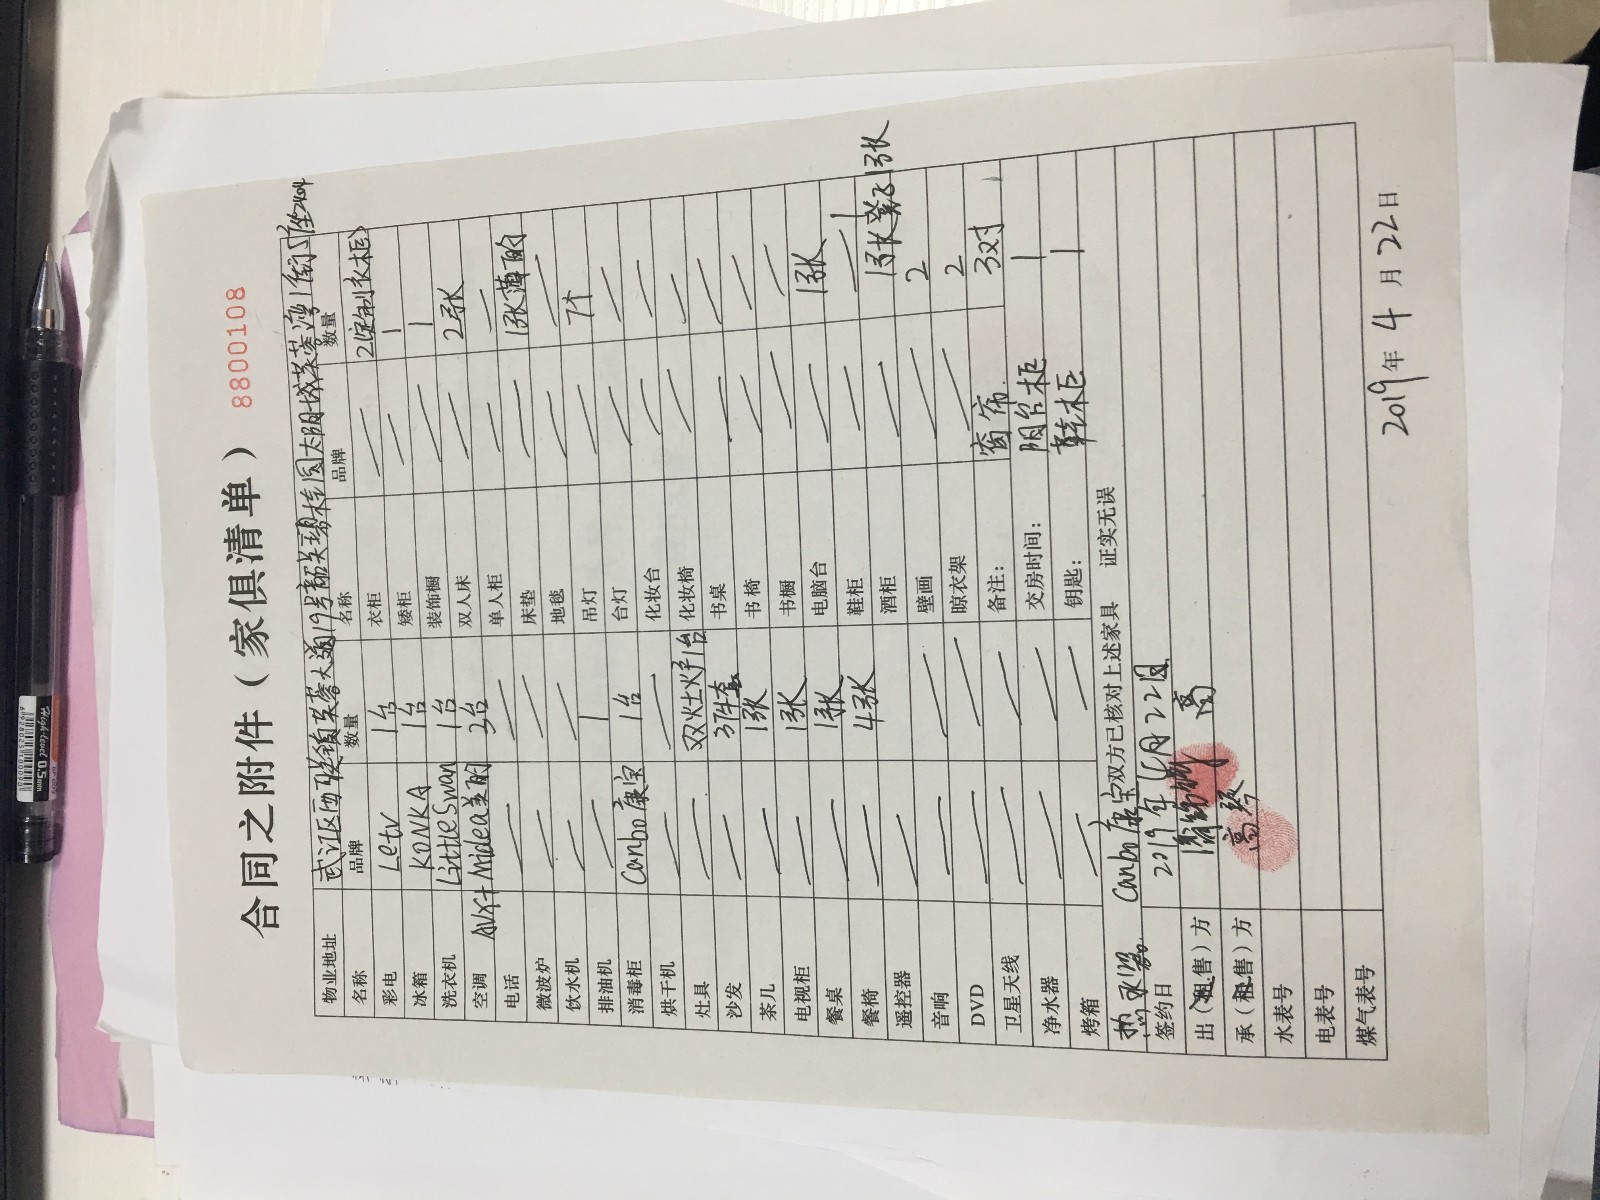 8800108
合同之附件（家俱清单）
物业地址 武江区西联镇芙蓉大道19号韶关碧桂园太阳城芙蓉湾1街5座2404
名称 品牌 数量 名称 品牌 数量
彩电 Letv 1台 衣柜 2(定制衣柜)
冰箱 KONKA 1台 矮柜 1
洗衣机 LittleSwan 1台 装饰橱 1
空调 AUX+Midea美的 3台 双人床 2张
电话 单人柜
微波炉 床垫 1张薄的
饮水机 地毯
排油机 1 吊灯 7个
消毒柜 Canbo康宝 1台 台灯
烘干机 化妆台
灶具 双灶炉1台 化妆椅
沙发 3件套 书桌
茶几 1张 书椅
电视柜 1张 书橱
餐桌 1张 电脑台 1张
餐椅 4张 鞋柜 1
遥控器 酒柜
音响 壁画 2
DVD 晾衣架 2
卫星天线 备注： 窗帘 3对
净水器 交房时间： 阳台柜 1
烤箱 钥匙： 鞋柜 1
Canbo康宝 双方已核对上述家具 证实无误
签约日 2019年4月22日
出（租售）方
承（租售）方
水表号
电表号
煤气表号
2019年4月22日
0.5mm